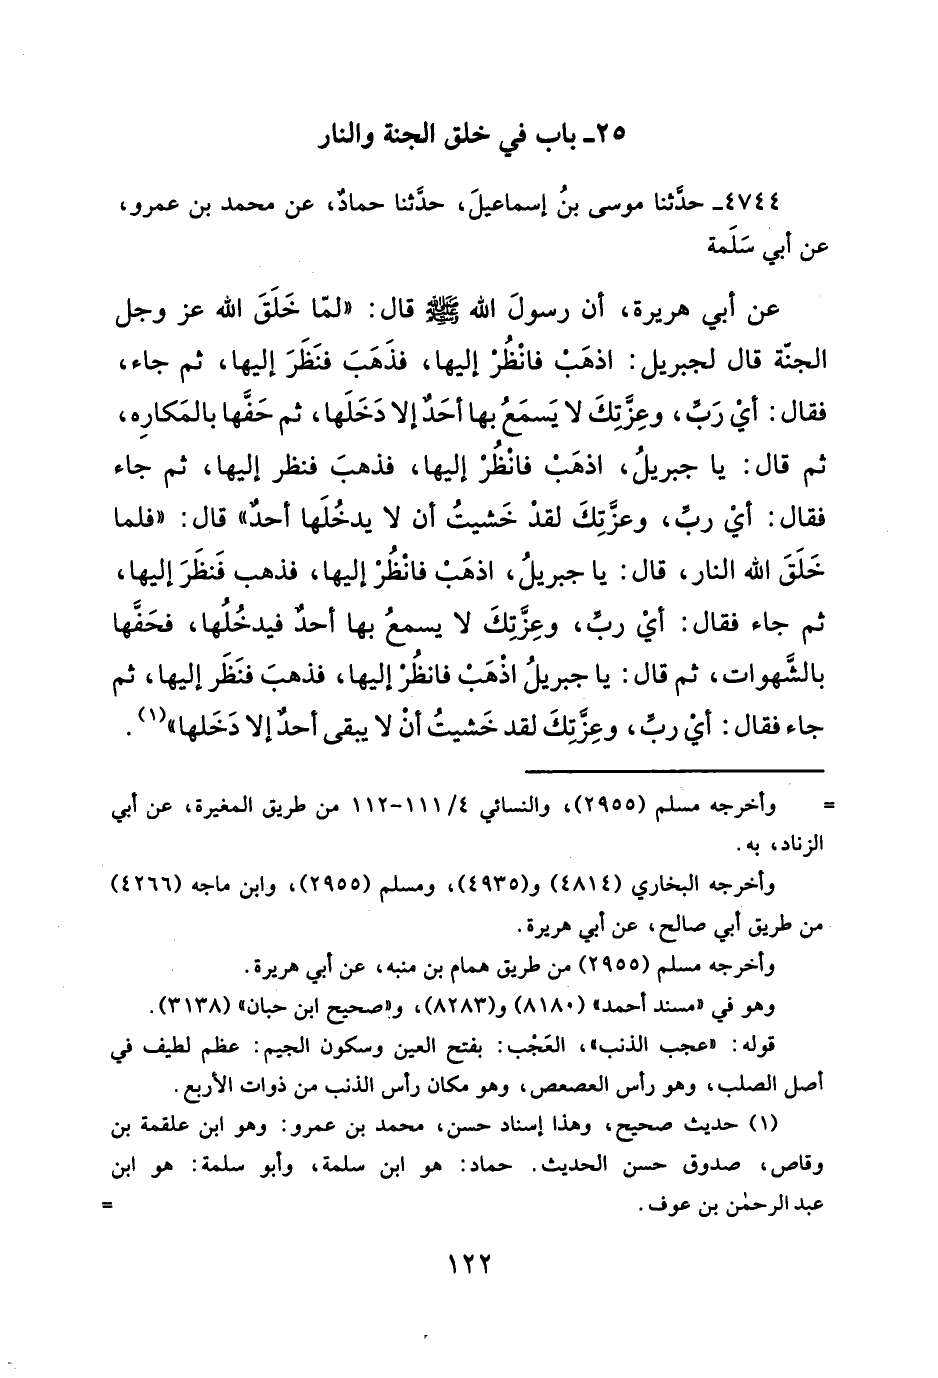 ٢٥ـ باب في خلق الجنة والنار
٤٧٤٤ـ حدَّثنا موسى بنُ إسماعيلَ، حدَّثنا حمادٌ، عن محمد بن عمرو،
عن أبي سَلَمة
عن أبي هريرة، أن رسولَ الله ﷺ قال: «لمّا خَلَقَ الله عز وجل
الجنّة قال لجبريل: اذهَبْ فانْظُرْ إليها، فذَهَبَ فنَظَرَ إليها، ثم جاء،
فقال: أيْ رَبِّ، وعِزَّتِكَ لا يَسمَعُ بها أحَدٌ إلا دَخَلَها، ثم حَفَّها بالمَكارِه،
ثم قال: يا جبريلُ، اذهَبْ فانْظُرْ إليها، فذهبَ فنظر إليها، ثم جاء
فقال: أيْ ربِّ، وعزَّتِكَ لقدْ خَشيتُ أن لا يدخُلَها أحدٌ» قال: «فلما
خَلَقَ الله النار، قال: يا جبريلُ، اذهَبْ فانْظُرْ إليها، فذهب فَنظَرَ إليها،
ثم جاء فقال: أيْ ربِّ، وعِزَّتِكَ لا يسمعُ بها أحدٌ فيدخُلُها، فحَفَّها
بالشَّهوات، ثم قال: يا جبريلُ اذْهَبْ فانظُرْ إليها، فذهبَ فنَظَر إليها، ثم
جاء فقال: أيْ ربِّ، وعِزَّتِكَ لقد خَشيتُ أنْ لا يبقى أحدٌ إلا دَخَلها»(١).
= وأخرجه مسلم (٢٩٥٥)، والنسائي ٤/ ١١١-١١٢ من طريق المغيرة، عن أبي
الزناد، به.
وأخرجه البخاري (٤٨١٤) و(٤٩٣٥)، ومسلم (٢٩٥٥)، وابن ماجه (٤٢٦٦)
من طريق أبي صالح، عن أبي هريرة.
وأخرجه مسلم (٢٩٥٥) من طريق همام بن منبه، عن أبي هريرة.
وهو في «مسند أحمد» (٨١٨٠) و(٨٢٨٣)، و«صحيح ابن حبان» (٣١٣٨).
قوله: «عجب الذنب»، العَجْب: بفتح العين وسكون الجيم: عظم لطيف في
أصل الصلب، وهو رأس العصعص، وهو مكان رأس الذنب من ذوات الأربع.
(١) حديث صحيح، وهذا إسناد حسن، محمد بن عمرو: وهو ابن علقمة بن
وقاص، صدوق حسن الحديث. حماد: هو ابن سلمة، وأبو سلمة: هو ابن
عبد الرحمٰن بن عوف. =
١٢٢